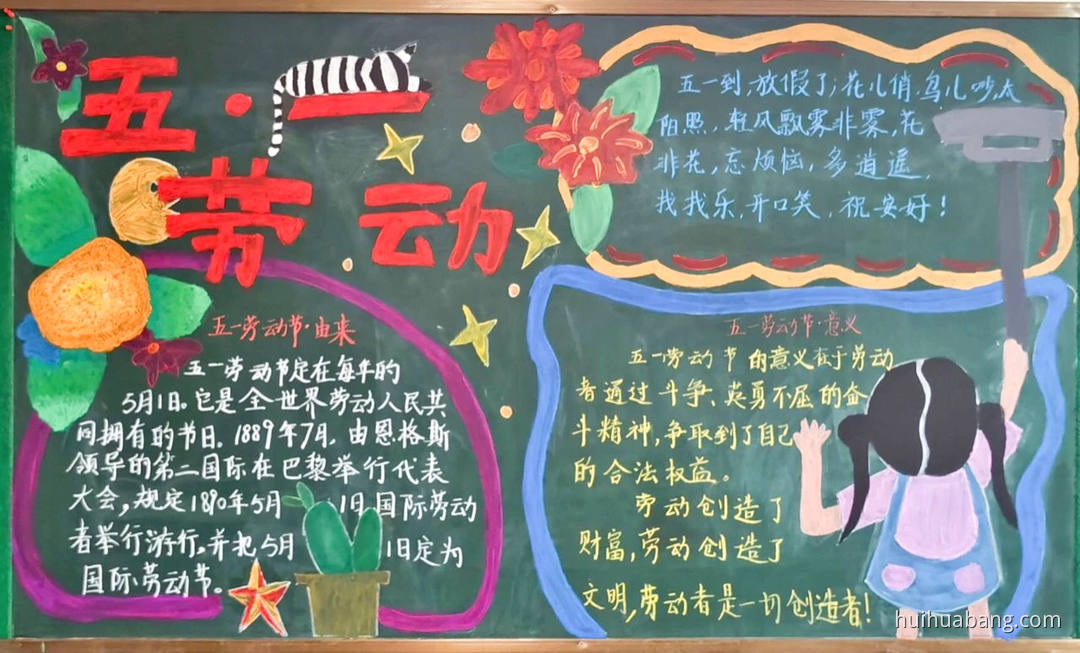 五·一
劳动
五一到,放假了;花儿俏,鸟儿吵,太
阳照,轻风飘,雾非雾,花
非花,忘烦恼,多逍遥,
找找乐,开口笑,祝安好!
五一劳动节·由来
五一劳动节定在每年的
5月1日。它是全世界劳动人民共
同拥有的节日。1889年7月,由恩格斯
领导的第二国际在巴黎举行代表
大会,规定1890年5月1日国际劳动
者举行游行,并把5月1日定为
国际劳动节。
五一劳动节·意义
五一劳动节的意义在于劳动
者通过斗争、英勇不屈的奋
斗精神,争取到了自己
的合法权益。
劳动创造了
财富,劳动创造了
文明,劳动者是一切创造者!
huihuabang.com